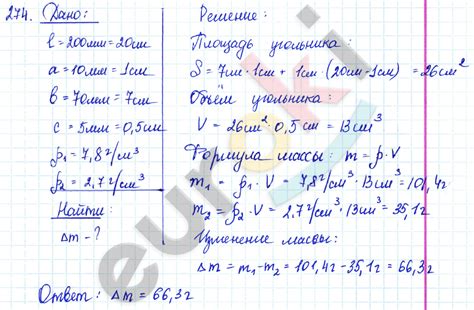 274. Дано:
l = 200мм = 20см
a = 10мм = 1см
b = 70мм = 7см
c = 5мм = 0,5см
ρ1 = 7,8 г/см³
ρ2 = 2.7 г/см³
Найти:
Δm - ?
Решение:
Площадь угольника:
S = 7см · 1см + 1см · (20см - 1см) = 26см²
Объём угольника:
V = 26см² · 0,5см = 13см³
Формула массы: m = ρ · V
m1 = ρ1 · V = 7,8 г/см³ · 13см³ = 101,4г
m2 = ρ2 · V = 2.7 г/см³ · 13см³ = 35,1г
Изменение массы:
Δm = m1 - m2 = 101,4г - 35,1г = 66,3г
Ответ: Δm = 66,3г
euroki